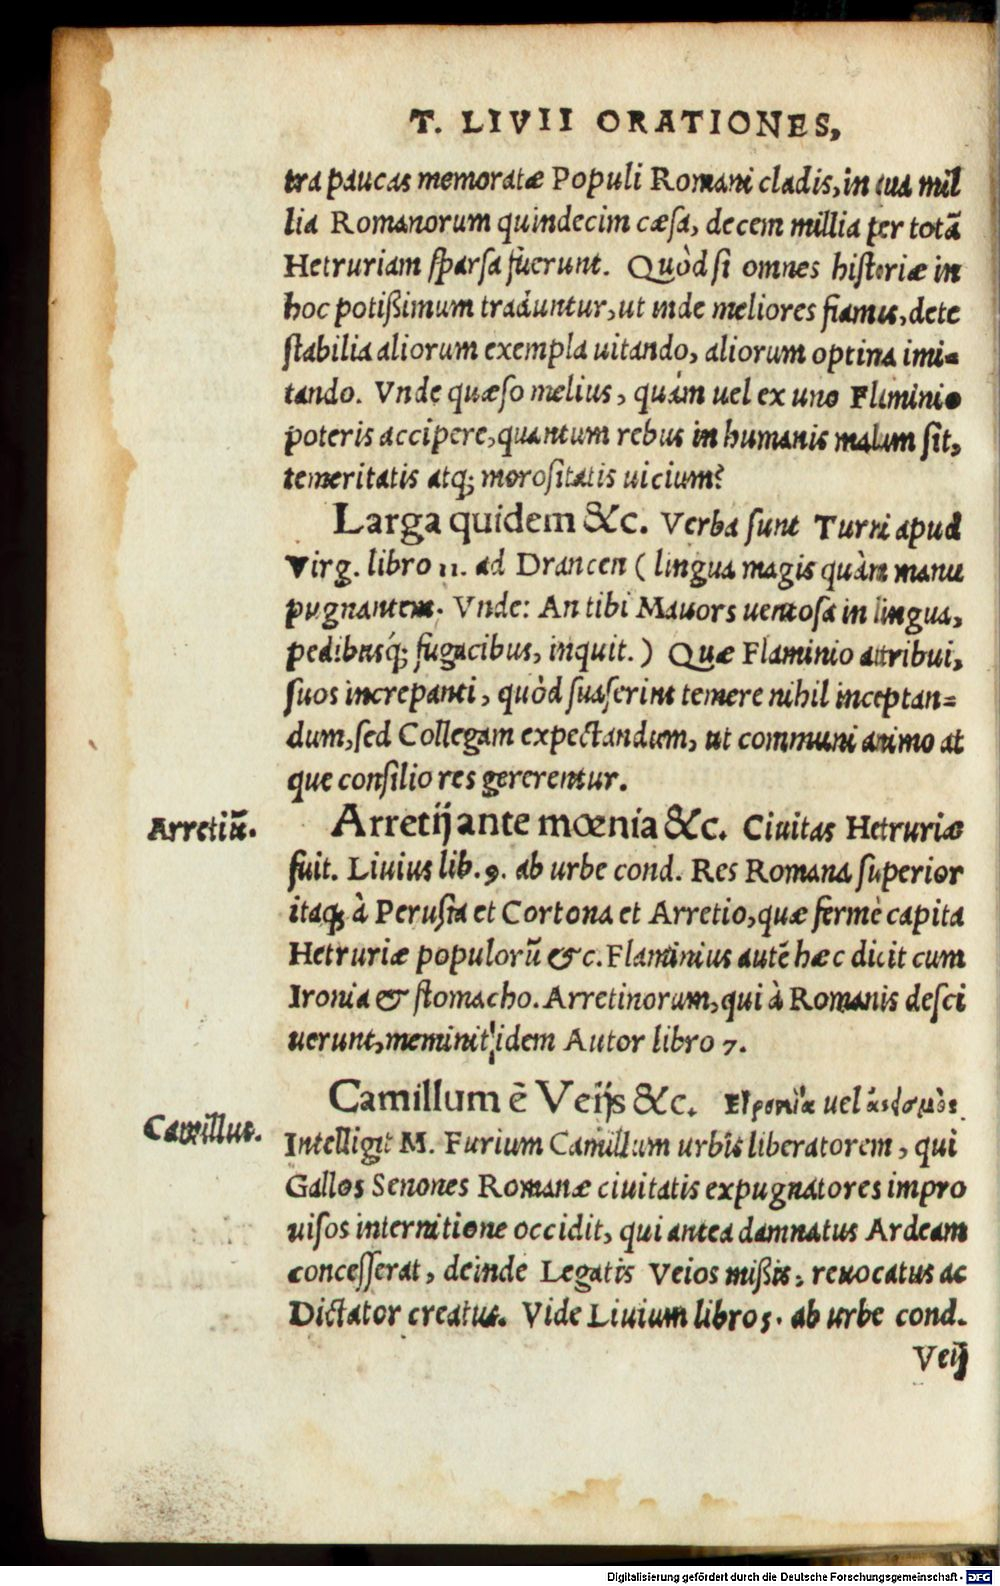 T. LIVII ORATIONES,
tra paucas memoratæ Populi Romani cladis, in qua mil
lia Romanorum quindecim cæsa, decem millia per totã
Hetruriam sparsa fuerunt. Quòd si omnes historiæ in
hoc potißimum traduntur, ut inde meliores fiamus, dete
stabilia aliorum exempla uitando, aliorum optima imi=
tando. Vnde quæso melius, quám uel ex uno Flaminio
poteris accipere, quantum rebus in humanis malum sit,
temeritatis atq; morositatis uicium?
Larga quidem &c. Verba sunt Turni apud
Virg. libro 11. ad Drancen (lingua magis quàm manu
pugnantem. Vnde: An tibi Mauors uentosa in lingua,
pedibusq́; fugacibus, inquit.) Quæ Flaminio attribui,
suos increpanti, quòd suaserint temere nihil inceptan=
dum, sed Collegam expectandum, ut communi animo at
que consilio res gererentur.
Arretiũ.
Arretij ante mœnia &c. Ciuitas Hetruriæ
fuit. Liuius lib. 9. ab urbe cond. Res Romana superior
itaq; à Perusia et Cortona et Arretio, quæ fermè capita
Hetruriæ populorũ &c. Flaminius autẽ hæc dicit cum
Ironia & stomacho. Arretinorum, qui à Romanis desci
uerunt, meminit idem Autor libro 7.
Camillus.
Camillum ẽ Veijs &c. uel
Intelligit M. Furium Camillum urbis liberatorem, qui
Gallos Senones Romanæ ciuitatis expugnatores impro
uisos internitione occidit, qui antea damnatus Ardeam
concesserat, deinde Legatis Veios mißis, reuocatus ac
Dictator creatus. Vide Liuium libro 5. ab urbe cond.
Veij
Digitalisierung gefördert durch die Deutsche Forschungsgemeinschaft - DFG